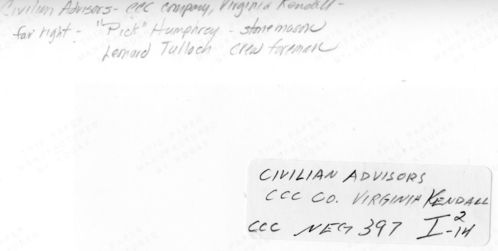 Civilian Advisors - CCC Company, Virginia Kendall -
far right - "Pick" Humphrey - stonemason
Leonard Tulloch crew foreman
CIVILIAN ADVISORS
CCC CO. VIRGINIA KENDALL
CCC NEG 397 I 2-14